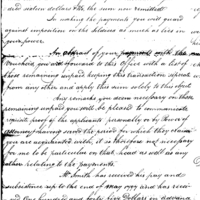 and sixteen dollars to the sum now remitted
In making the payments you will guard
against imposition in the soldiers as much as lies in
your power.
An abstract of your payments with the
Vouchers, you will forward to this Office with a list of
those remaining unpaid keeping this transaction separate
from any other and apply this sum solely to this object
Any remarks you deem necessary on those
remaining unpaid you will be pleased to communicate
requisite proof of the applicants personally or by Power of
Attorney having served the period for which they claim
you are acquainted with, it is therefore not necessary
for me to be particular on that head as well as any
other relating to the payments.
Mr Smith has received his pay and
subsistence up to the end of May 1797 and has received
One hundred and forty five Dollars in advance